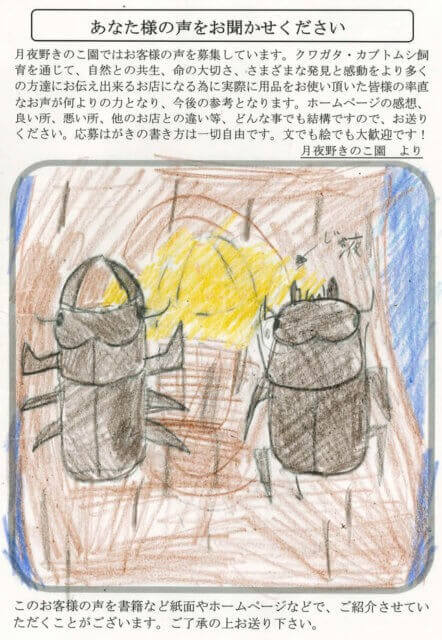 あなた様の声をお聞かせください
月夜野きのこ園ではお客様の声を募集しています。クワガタ・カブトムシ飼
育を通じて、自然との共生、命の大切さ、さまざまな発見と感動をより多く
の方達にお伝え出来るお店になる為に実際に用品をお使い頂いた皆様の率直
なお声が何よりの力となり、今後の参考となります。ホームページの感想、
良い所、悪い所、他のお店との違い等、どんな事でも結構ですので、お送り
ください。応募はがきの書き方は一切自由です。文でも絵でも大歓迎です！
月夜野きのこ園　より
じゅ液
このお客様の声を書籍など紙面やホームページなどで、ご紹介させてい
ただくことがございます。ご了承の上お送り下さい。